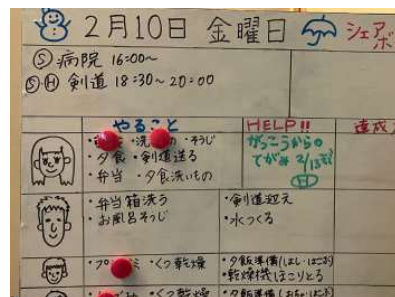 2月10日 金曜日 シェア
Ⓢ病院 16:00~
ⓈⒽ 剣道 18:30~20:00
やること HELP!!
・そうじ
・夕食 ・剣道送る
・弁当 ・夕食洗いもの
がっこうからの
てがみ 2/13まで
Ⓗ
・弁当箱洗う
・お風呂そうじ
・剣道迎え
・水つくる
・くつ乾燥
・夕飯準備(はし・はこぶ)
・乾燥機ほこりとる
・くつ乾燥